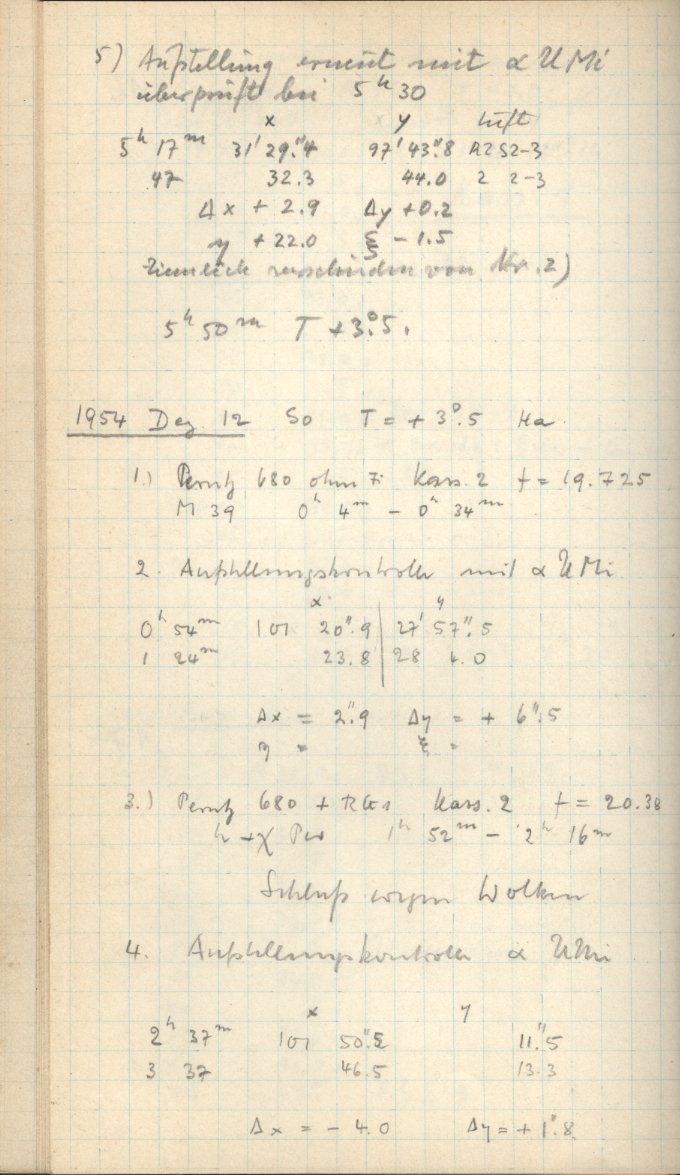 5) Aufstellung erneut mit α UMi
überprüft bei 5ʰ30
x y Luft
5ʰ 17ᵐ 31' 29."4 97' 43."8 R2 S2-3
47 32.3 44.0 2 2-3
Δx + 2.9 Δy +0.2
η +22.0 ξ -1.5
Ziemlich verschieden von Nr. 2)
5ʰ 50ᵐ T +3°.5.
1954 Dez. 12 So T = +3°.5 Ha
1.) Perutz 680 ohne Fi Kass. 2 f = 19.725
M 39 0ʰ 4ᵐ - 0ʰ 34ᵐ
2. Aufstellungskontrolle mit α UMi
x y
0ʰ 54ᵐ 101 20".9 27' 57".5
1 24ᵐ 23.8 28 4.0
Δx = 2".9 Δy = + 6".5
η = ξ =
3.) Perutz 680 + RG1 Kass. 2 f = 20.38
h + χ Per 1ʰ 52ᵐ - 2ʰ 16ᵐ
Schluß wegen Wolken
4. Aufstellungskontrolle α UMi
x y
2ʰ 37ᵐ 101 50".5 11".5
3 37 46.5 13.3
Δx = - 4.0 Δy = + 1".8